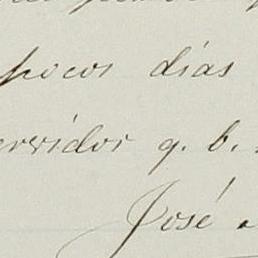 pocos días
servidor q. b.
José